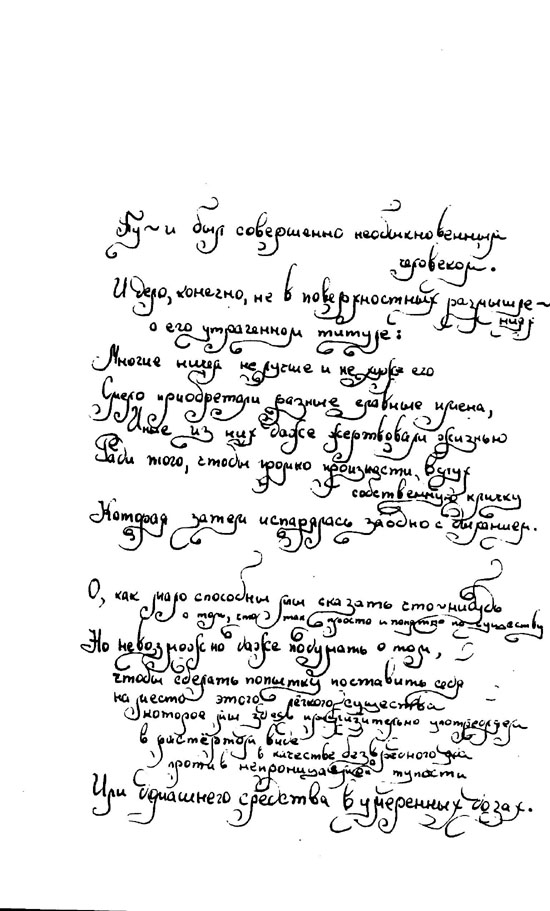 Пу~и был совершенно необыкновенным
человеком.
И дело, конечно, не в поверхностных размышле~
ниях
о его утраченном титуле:
Многие ничем не лучше и не хуже его
Смело приобретали разные славные имена,
Иные из них даже жертвовали жизнью
Ради того, чтобы громко произнести вслух
собственную кличку
Которая затем испарялась заодно с дыханием.
О, как мало способны мы сказать что~нибудь
о том, что так просто и понятно по существу
Но невозможно даже подумать о том,
чтобы сделать попытку поставить себя
на место этого лёгкого существа
которое мы здесь приблизительно употребляем
в растёртом виде
в качестве безвредного
против непроницаемой тупости
Или домашнего средства в умеренных дозах.